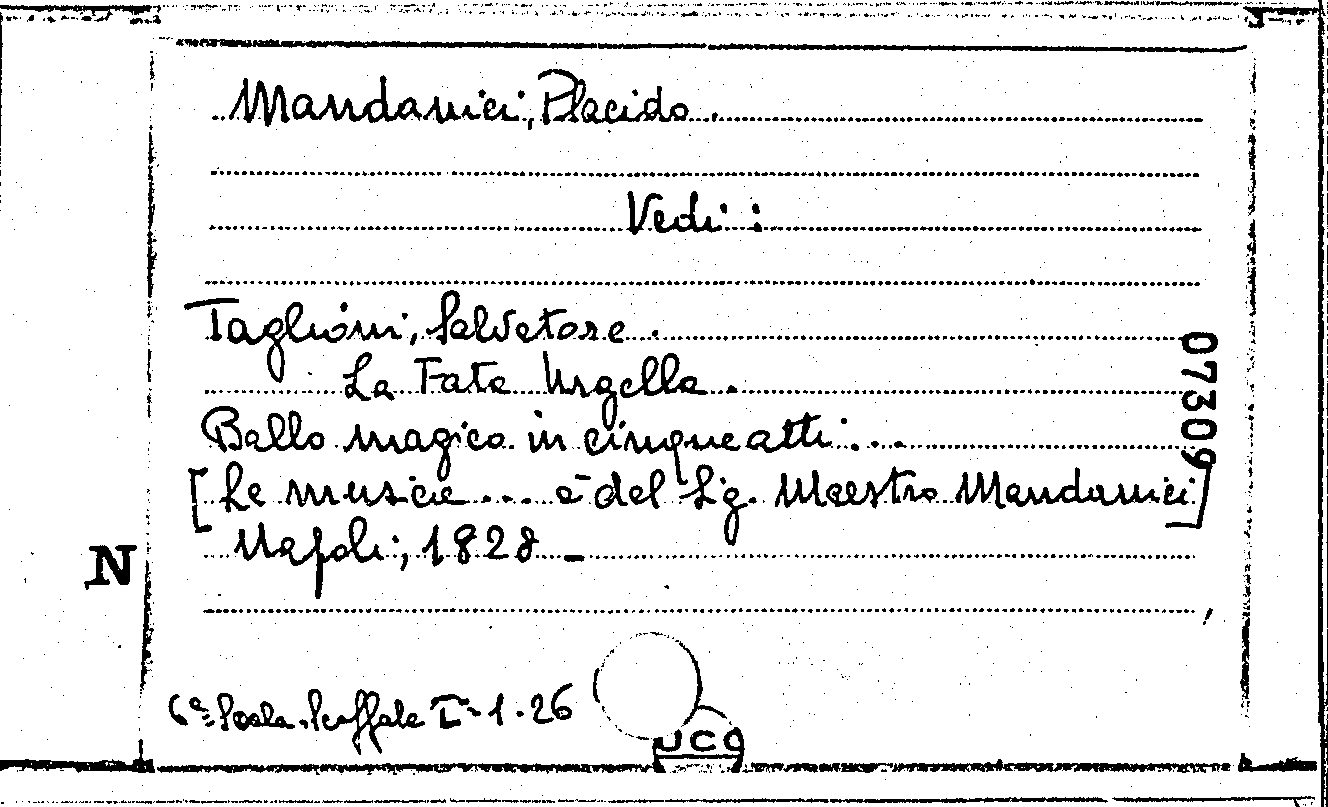 Mandanici, Placido.
Vedi:
Taglioni, Salvatore.
La Fata Urgella.
Ballo magico in cinque atti...
[La musica ... è del Sig. Maestro Mandanici]
Napoli, 1828 -
07309
N
6ª Scala. Scaffale I-1-26
UCC